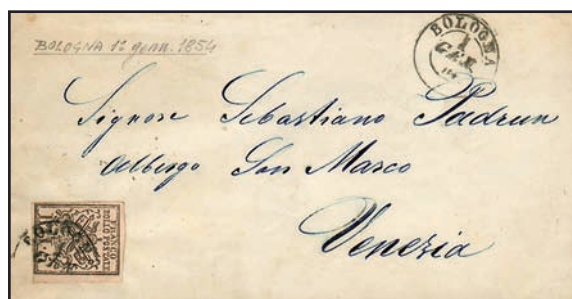 BOLOGNA 1° genn. 1854
BOLOGNA
1
GEN.
Signore Sebastiano Padrun
Albergo San Marco
Venezia
FRANCO
BOLLO POSTALE
BOLOGNA